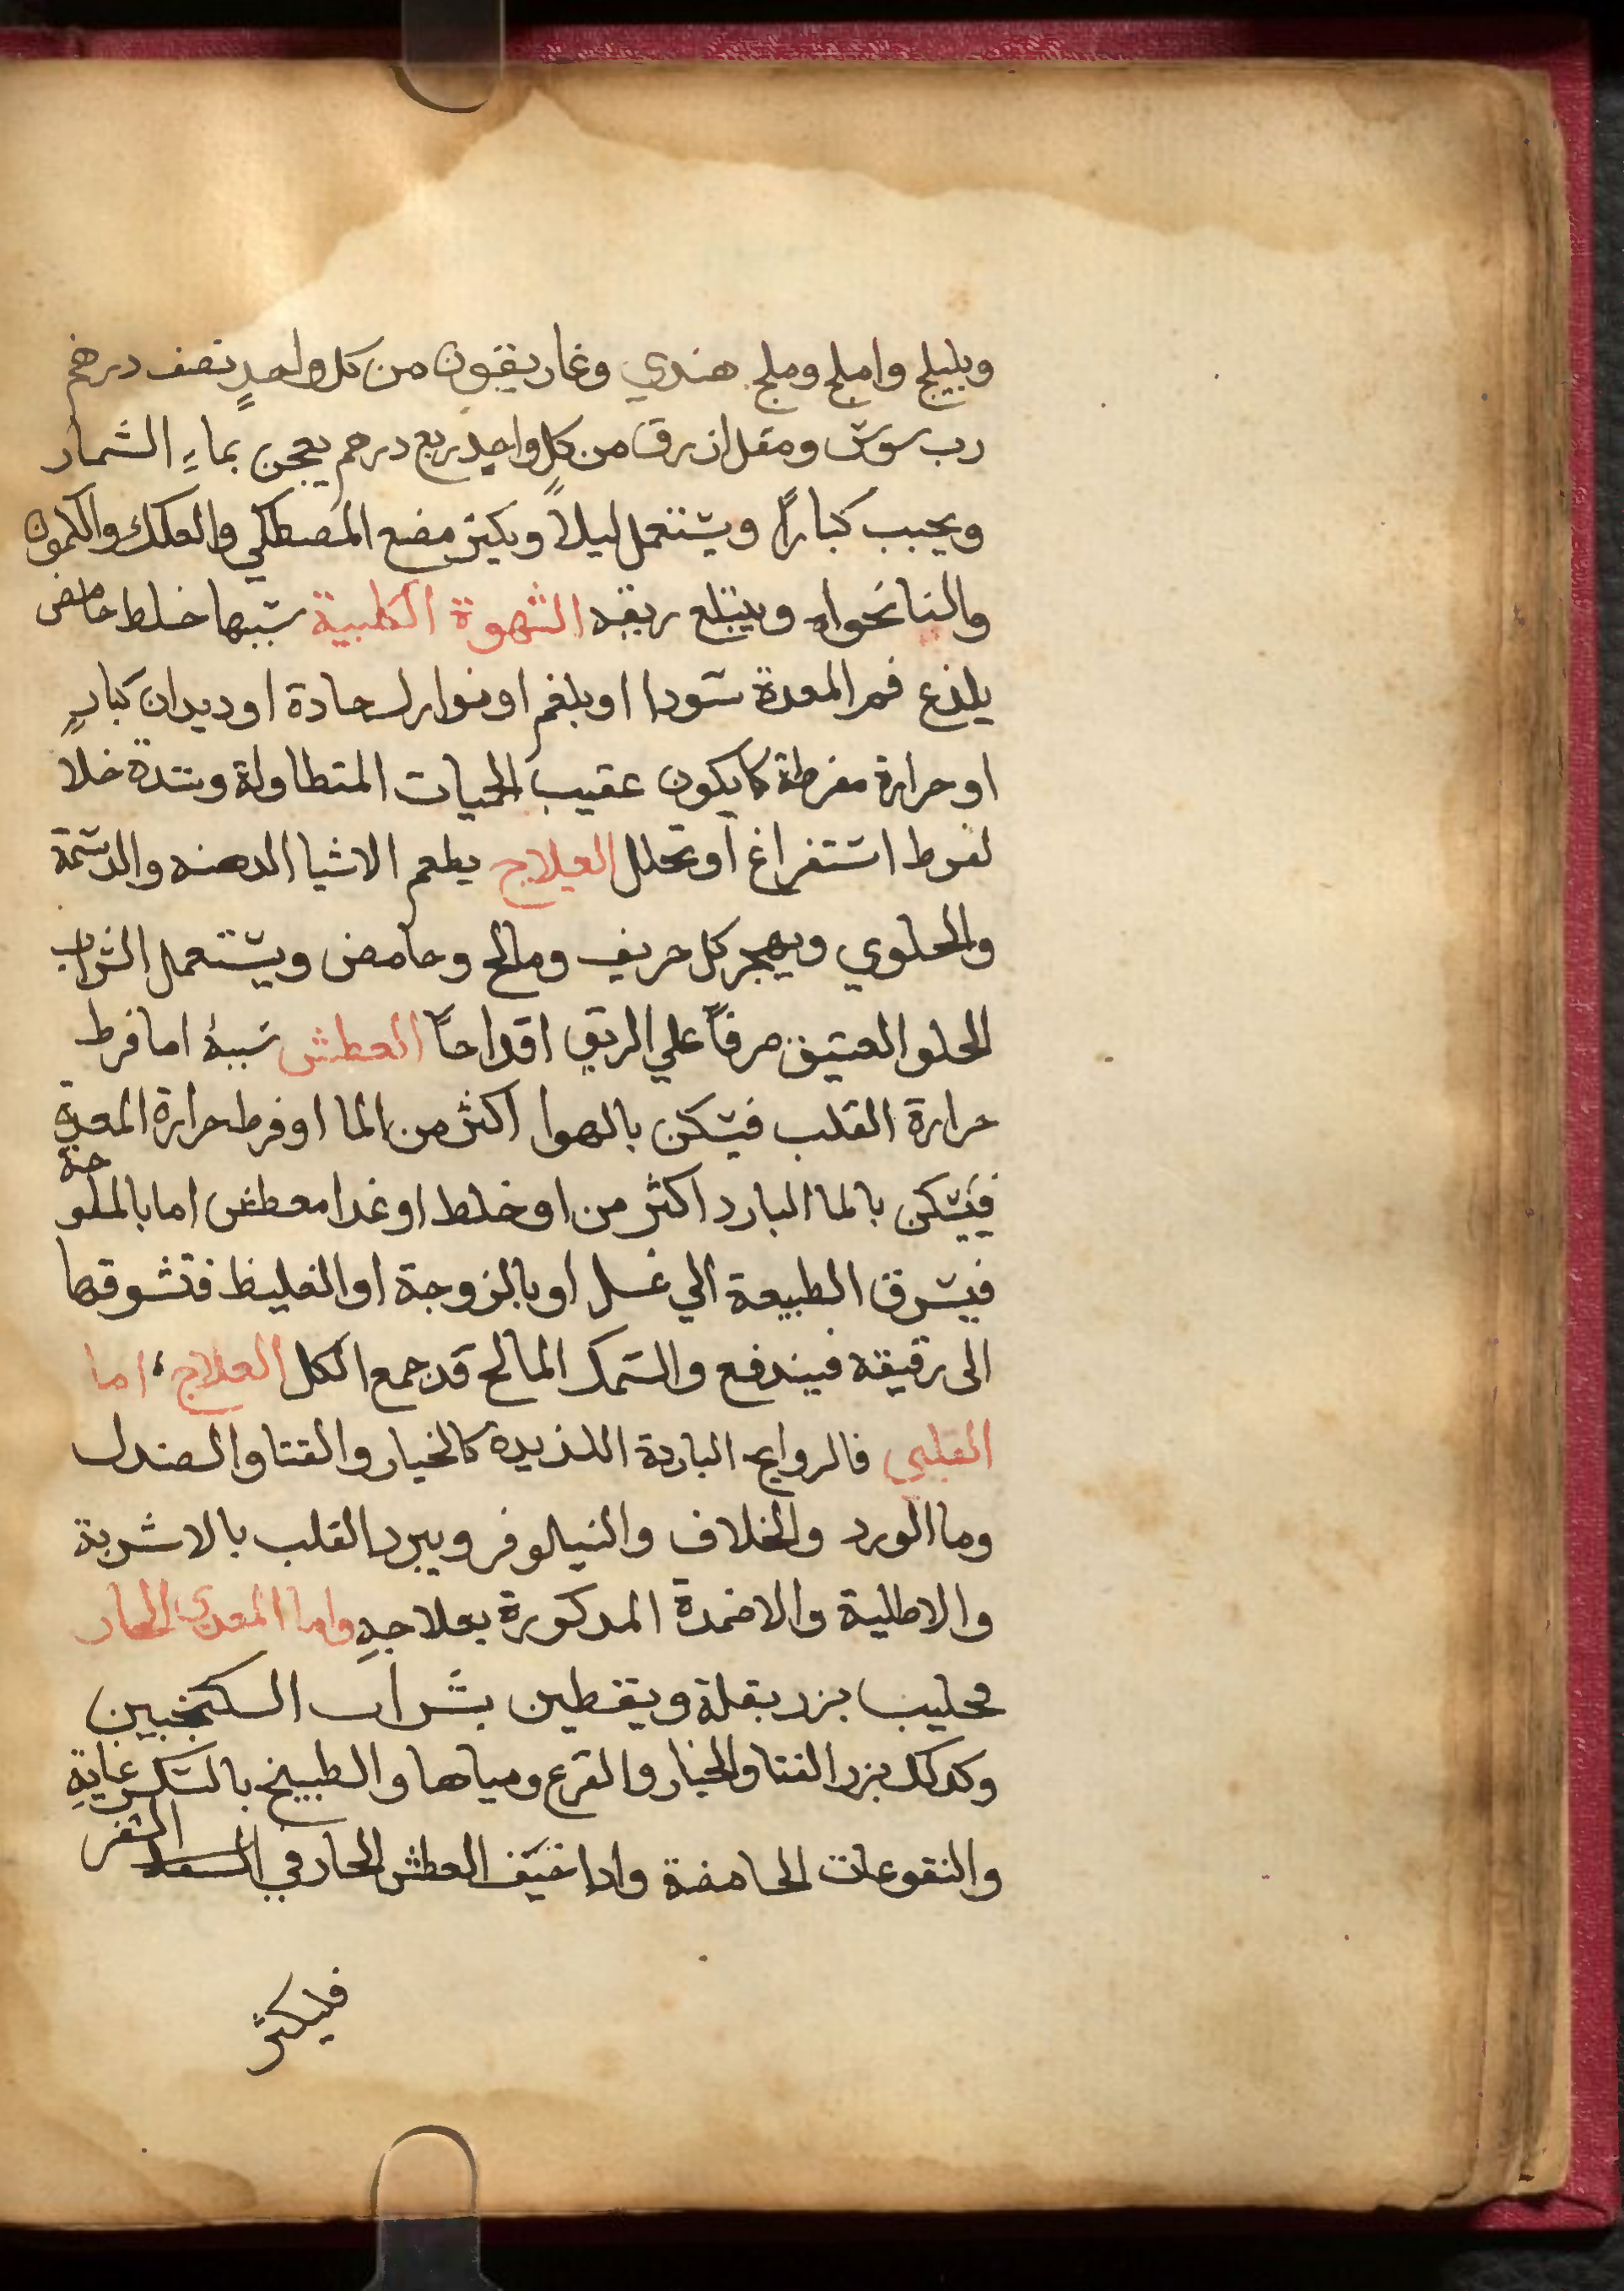 وبليلج واملج وملح هندي وغاريقون من كل واحدٍ نصف درهم
رب سوس ومقل ازرق من كل واحدٍ ربع درهم يعجن بماءِ الشمار
ويحبب كباراً ويستعمل ليلاً ويكثر مضع المصطكي والعلك والكمون
والنانخواه ويبتلع ريقه الشهوة الكلبية سببها خلط حامض
يلذع فم المعدة سودا او بلغم او نوازل حادة او ديدان كبارٍ
او حرارة مفرطة كما يكون عقيب الحميات المتطاولة وشدة خلا
لفرط استفراغ او تحلل العلاج يطعم الاشيا الدهنه والدسمة
والحلوي ويهجر كل حريف ومالح وحامض ويستعمل الشراب
الحلو العتيق صرفاً علي الريق اقداحاً العطش سببهُ اما فرط
حرارة القلب فيسكن بالهوا اكثر من الما او فرط حرارة المعدة
فيسكن بالما البارد اكثر من او خلط او غدا معطش اما بالملوحة
فيشرق الطبيعة الي غسل او بالزوجة او الغليظ فتشوقها
الى رقيقه فيندفع والسمك المالح قد جمع الكل العلاج، اما
القلبي فالروايح الباردة اللذيدة كالخيار والقثا والصندل
وما الورد والخلاف والنيلوفر ويبرد القلب بالاشربة
والاطلية والاضمدة المدكورة بعلاجهِ واما المعدي الحار
فحليب بزر بقلة ويقطين بشراب السكنجبين
وكدلك بزر القثا والخيار والقرع ومياها والطبيخ بالسكر غايةِ
والنقوعات الحامضة وادا خيف العطش الحار في السفر
فليكثر